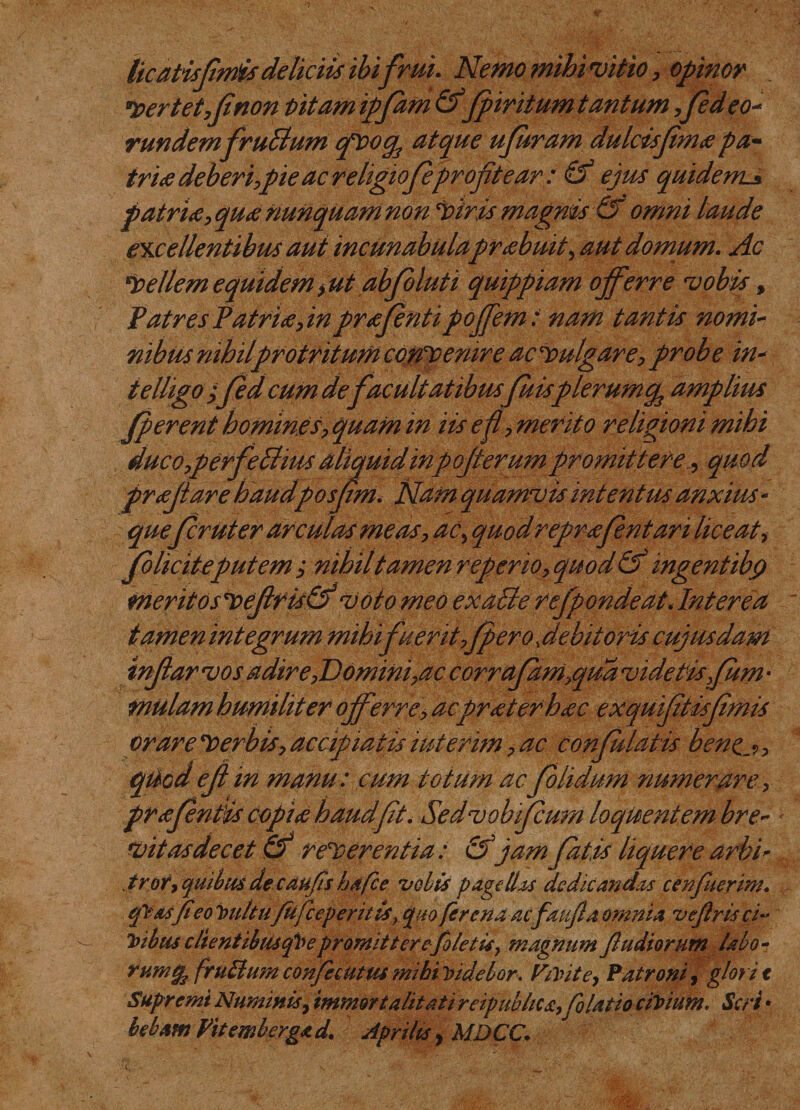 licatisſimis deliciis ibi frui. Nemo mihi vitio, opinor
vertet, ſi non vitam ipſam & ſpiritum tantum, ſed eo-
rundem fructum qvoq; atque uſuram dulcisſimæ pa-
triæ deberi, pie ac religioſe profitear: & ejus quidem
patriæ, quæ nunquam non viris magnis & omni laude
excellentibus aut incunabula præbuit, aut domum. Ac
vellem equidem, ut abſoluti quippiam offerre vobis,
Patres Patriæ, in præſenti poſſem: nam tantis nomi-
nibus nihil protritum convenire ac vulgare, probe in-
telligo; ſed cum de facultatibus ſuis plerumq; amplius
ſperent homines, quam in iis eſt, merito religioni mihi
duco, perfectius aliquid in poſterum promittere, quod
præſtare haud posſim. Nam quamvis intentus anxius-
que ſcruter arculas meas, ac, quod repræſentari liceat,
ſolicite putem; nihil tamen reperio, quod & ingentibꝫ
meritos veſtris & voto meo exacte reſpondeat. Interea
tamen integrum mihi fuerit, ſpero, debitoris cujusdam
inſtar vos adire, Domini, ac corraſam, quã videtis, ſum-
mulam humiliter offerre, ac præter hæc exquiſitisſimis
orare verbis, accipiatis iuterim, ac conſulatis bene,
quod eſt in manu: cum totum ac ſolidum numerare,
præſentis copiæ haud ſit. Sed vobiſcum loquentem bre-
vitas decet & reverentia: & jam ſatis liquere arbi-
tror, quibus de cauſis haſce vobis pagellas dedicandas cenſuerim.
qvas ſi eo vultu ſuſceperitis, quo ſerena ac fauſta omnia veſtris ci-
vibus clientibusqve promittere ſoletis, magnum ſtudiorum labo-
rumq; fructum conſecutus mihi videbor. Vivite, Patroni, gloriæ
Supremi Numinis, immortalitati reipublicæ, ſolatio civium. Scri-
bebam Vitembergæ d. Aprilis, MDCC.